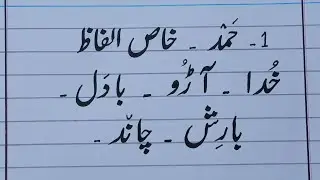 1۔ حَمْد ۔ خاص الفاظ
خُدا ۔ آڑُو ۔ بادَل ۔
بارِش ۔ چانْد ۔